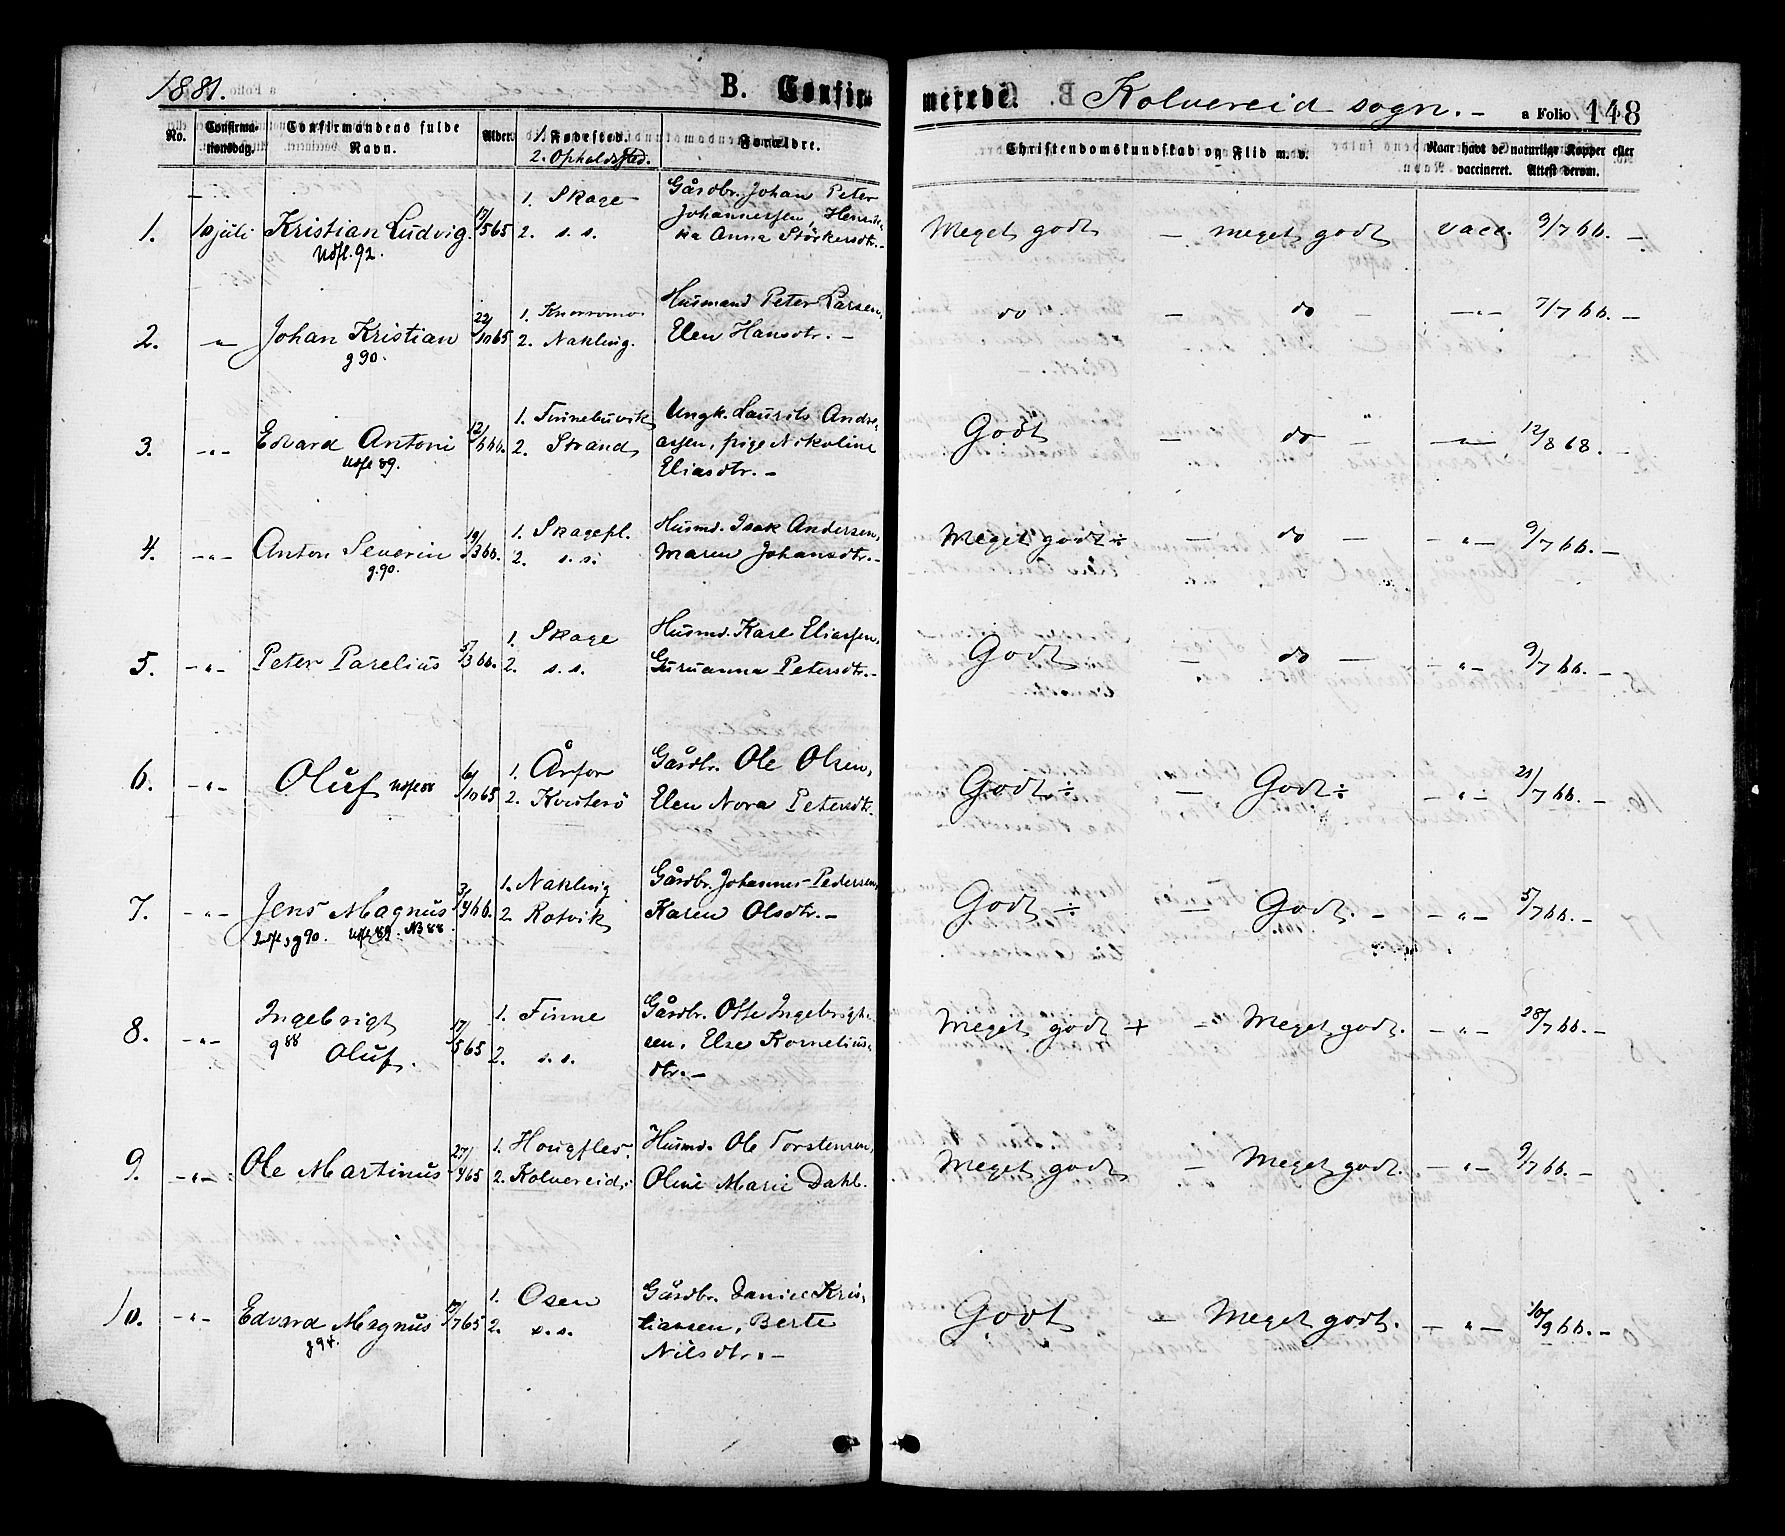 1881. B. Confirmerede. Kolvereid sogn. - a Folio 148
No. Confirmationsdag. Confirmandens fulde Navn. Alder. 1. Fødested. 2. Opholdssted. Forældre. Christendomskundskab og Flid m. v. Naar havt de naturlige Kopper eller vaccineret. Attest derom.
1. Skage Gårdbr. Johan Peter
1. 10 juli Kristian Ludvig. 17/5 65 2. s. s. Johannessen, Henrik- Meget godt - meget godt vacc. 9/7 66. -
Udfl. 92. ka Anna Störkersdtr. -
1. Husmand Peter Larsen,
2. -"- Johan Kristian 22/10 65 2. Nakling. Elen Hansdtr. - do - do - -"- 7/7 66. -
g 90.
1. Finnebuvik Ungk. Laurits Andre-
3. -"- Edvard Antoni 12/ 66. 2. Strand assen, pige Nikoline Godt - do - -"- 12/8 68. -
Udfl 89. Eliasdtr. -
1. Skagepl. Husmd. Isak Andersen,
4. -"- Anton Severin 19/3 66. 2. s. s. Maren Johansdtr. - Meget godt ÷ - do - -"- 9/7 66. -
g. 90.
1. Skage Husmd. Karl Eliassen,
5. -"- Peter Parelius 5/3 66. 2. s. s. Guruanna Petersdtr. - Godt - do - -"- 9/7 66. -
1. Årfor Gårdbr. Ole Olsen,
6. -"- Oluf 6/10 65 2. Kvisterö Elen Nora Petersdtr. Godt ÷ - Godt ÷ -"- 21/7 66. -
1. Nakling Gårdbr. Johannes Pedersen,
7. -"- Jens Magnus 3/4 66. 2. Rotvik Karen Olsdtr. - Godt ÷ - Godt. - -"- 5/7 66. -
g 90. Udfl 89. NB 88.
Ingebrigt 1. Finne Gårdbr. Otte Ingebrigt-
8. -"- g 88 Oluf. 17/5 65 2. s. s. sen, Else Kornelius- Meget godt + - Meget godt. -"- 28/7 66. -
dtr. -
1. Hougfles. Husmd. Ole Torstensen,
9. -"- Ole Martinus 27/4 65 2. Kolvereid. Oline Marie Dahl. Meget godt - Meget godt. -"- 9/7 66. -
1. Osen Gårdbr. Daniel Kris-
10. -"- Edvard Magnus /7 65 2. s. s. tiansen, Berte Godt - Meget godt. -"- 10/9 66. -
g 94. Nilsdtr. -